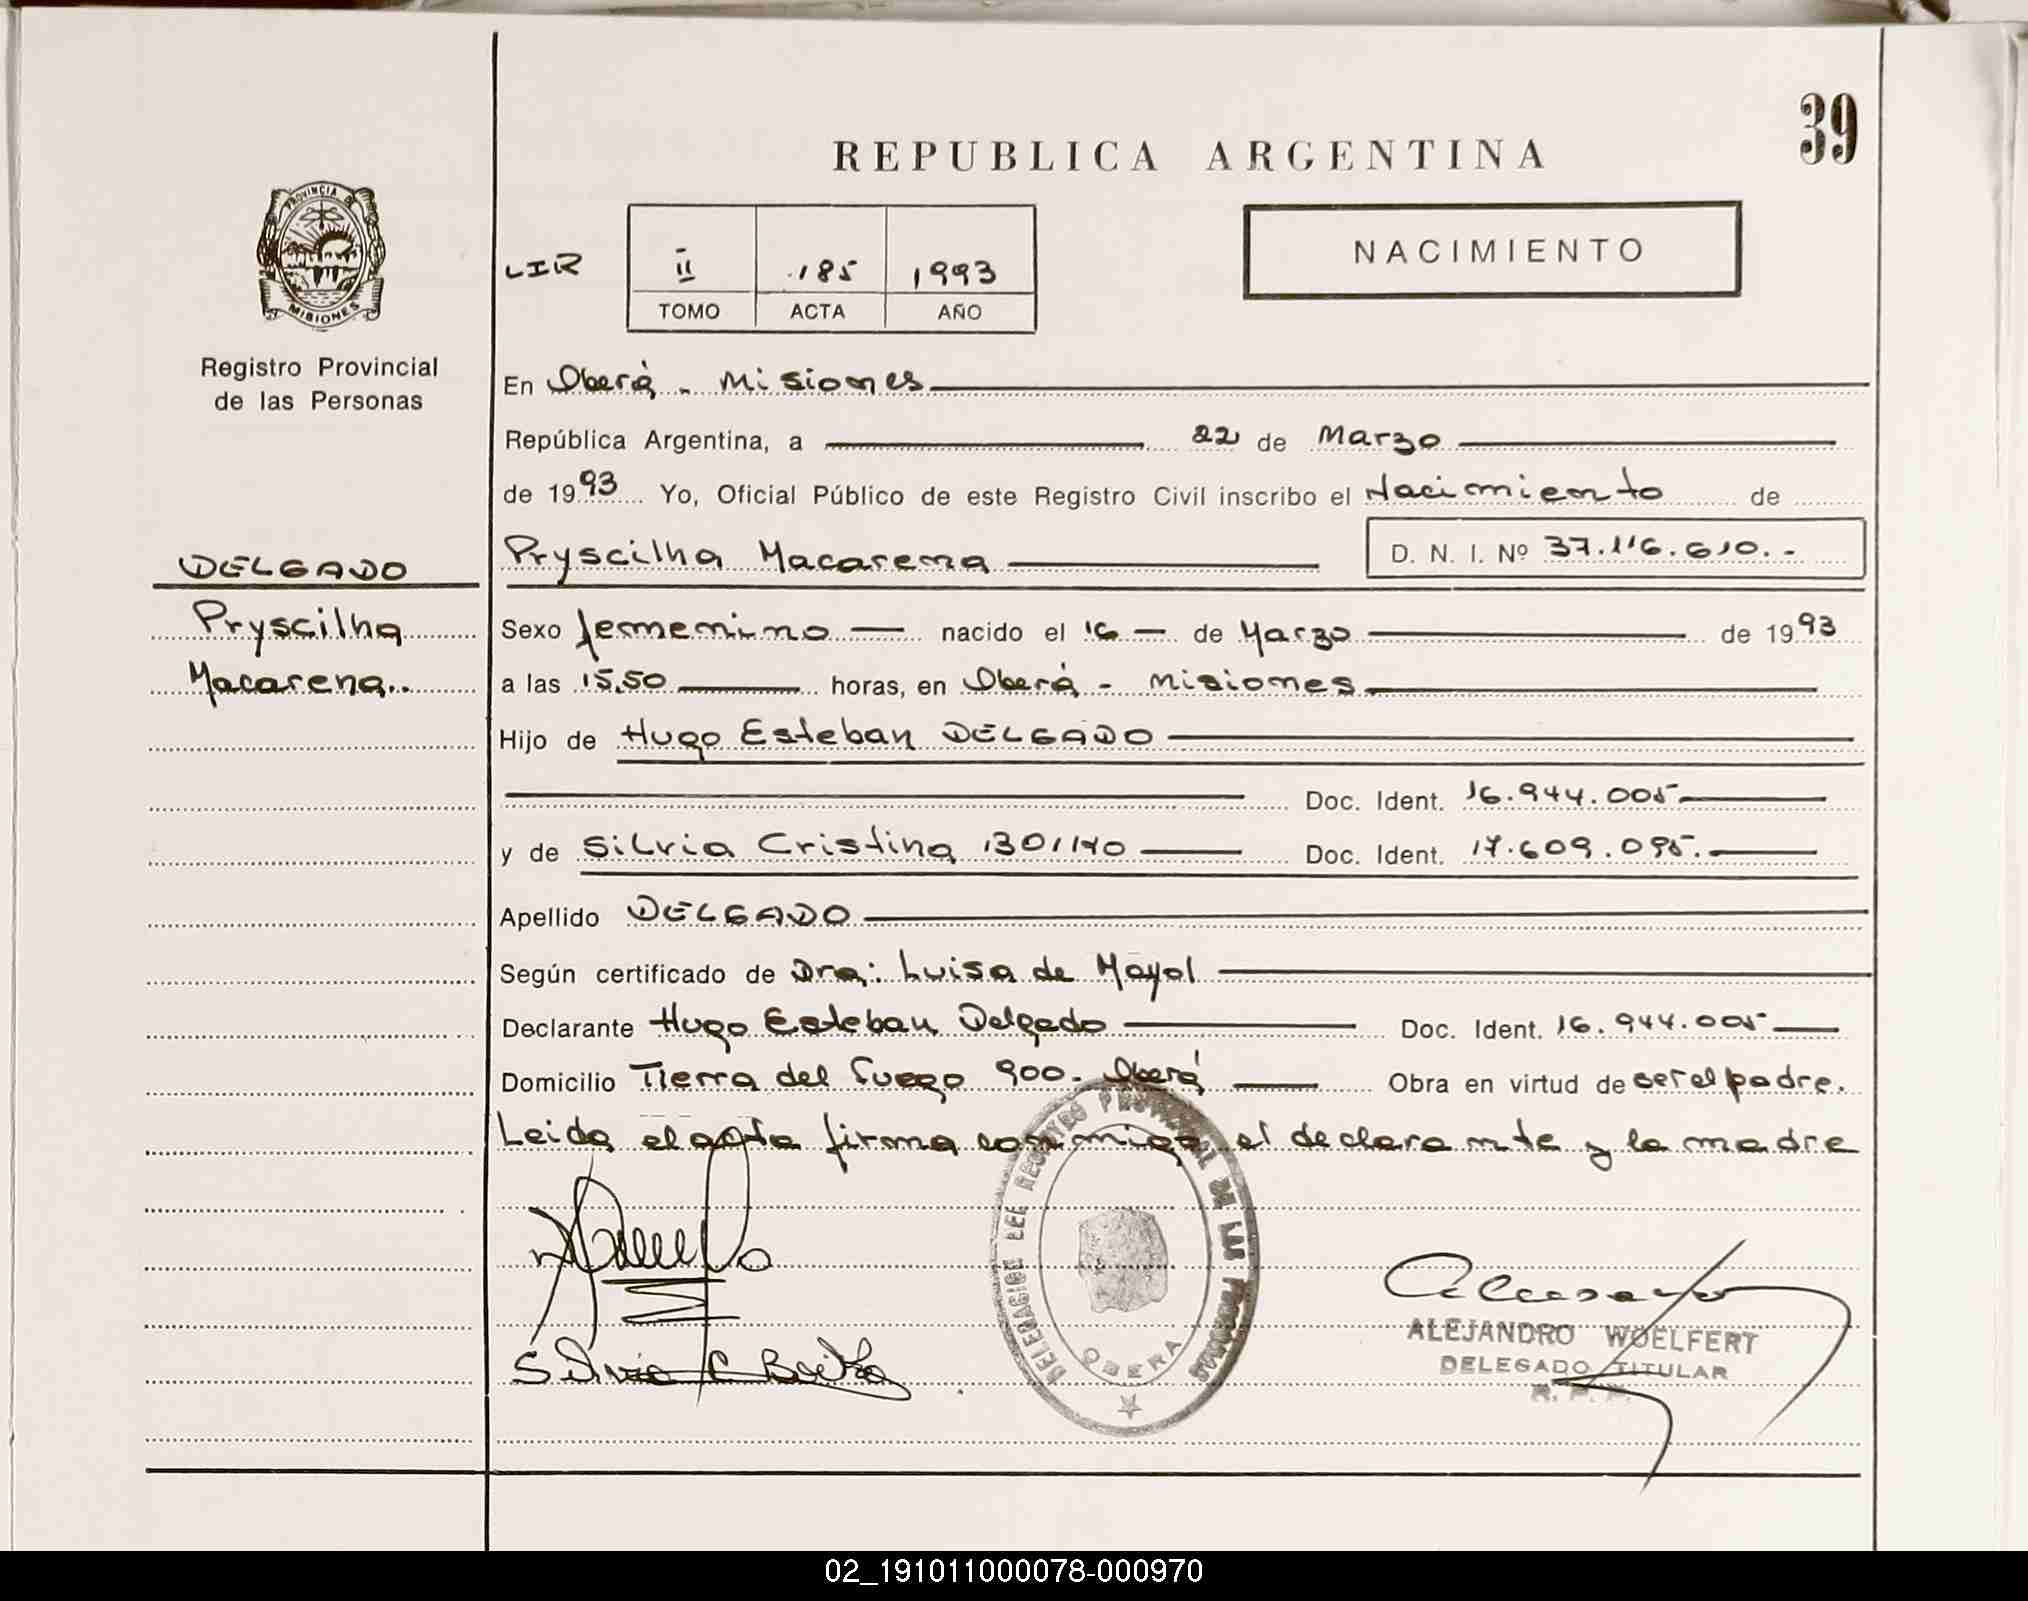 39
REPUBLICA ARGENTINA
PROVINCIA DE
MISIONES
Registro Provincial
de las Personas
LIR
II 185 1993
TOMO ACTA AÑO
NACIMIENTO
En Oberá - Misiones
República Argentina, a 22 de Marzo
de 1993 Yo, Oficial Público de este Registro Civil inscribo el Nacimiento de
DELGADO
Pryscilha
Macarena..
Pryscilha Macarena D. N. I. Nº 37.116.610.-
Sexo femenino nacido el 16 de Marzo de 1993
a las 15,50 horas, en Oberá - Misiones
Hijo de Hugo Esteban DELGADO
Doc. Ident. 16.944.005
y de Silvia Cristina Doc. Ident. 17.609.095.
Apellido DELGADO
Según certificado de Dra: Luisa de Mayol
Declarante Hugo Esteban Delgado Doc. Ident. 16.944.005
Domicilio Tierra del fuego 900. Oberá Obra en virtud de ser el padre.
Leida el acta firma conmigo el declarante y la madre
DELEGACION DEL REGISTRO PROVINCIAL DE LAS PERSONAS
OBERA
Silvia C
ALEJANDRO WOELFERT
DELEGADO TITULAR
R. P. P.
02_191011000078-000970